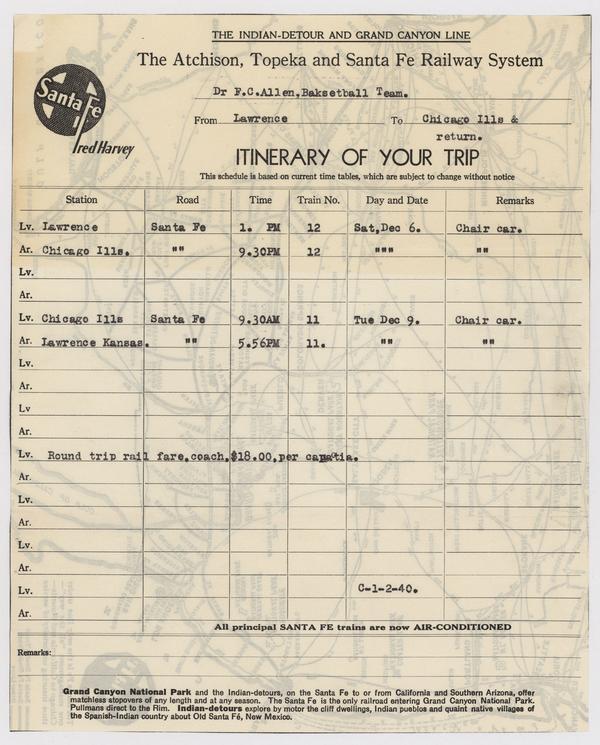 THE INDIAN-DETOUR AND GRAND CANYON LINE
The Atchison, Topeka and Santa Fe Railway System
Santa Fe
Fred Harvey
Dr F.C.Allen,Baksetball Team.
From Lawrence To Chicago Ills &
return.
ITINERARY OF YOUR TRIP
This schedule is based on current time tables, which are subject to change without notice
Station Road Time Train No. Day and Date Remarks
Lv. Lawrence Santa Fe 1. PM 12 Sat,Dec 6. Chair car.
Ar. Chicago Ills. "" 9.30PM 12 """ ""
Lv.
Ar.
Lv. Chicago Ills Santa Fe 9.30AM 11 Tue Dec 9. Chair car.
Ar. Lawrence Kansas. "" 5.56PM 11. "" ""
Lv.
Ar.
Lv
Ar.
Lv. Round trip rail fare,coach,$18.00,per
Ar.
Lv.
Ar.
Lv.
Ar.
Lv. C-1-2-40.
Ar.
All principal SANTA FE trains are now AIR-CONDITIONED
Remarks:
Grand Canyon National Park and the Indian-detours, on the Santa Fe to or from California and Southern Arizona, offer
matchless stopovers of any length and at any season. The Santa Fe is the only railroad entering Grand Canyon National Park.
Pullmans direct to the Rim. Indian-detours explore by motor the cliff dwellings, Indian pueblos and quaint native villages of
the Spanish-Indian country about Old Santa Fé, New Mexico.